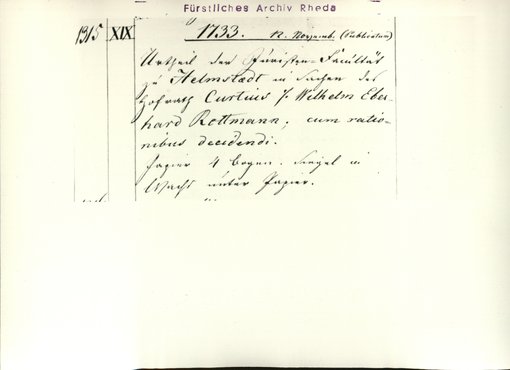 Fürstliches Archiv Rheda
1315 XIX 1733. 12. Novemb. (Publicatum)
Urtheil der Juristen-Facultät
zu Helmstædt in Sachen des
Hofrath Curtius /. Wilhelm Eber-
hard Rottmann, cum ratio-
nibus decidendi.
Papier 4 Bogen. Siegel in
Wachs unter Papier.